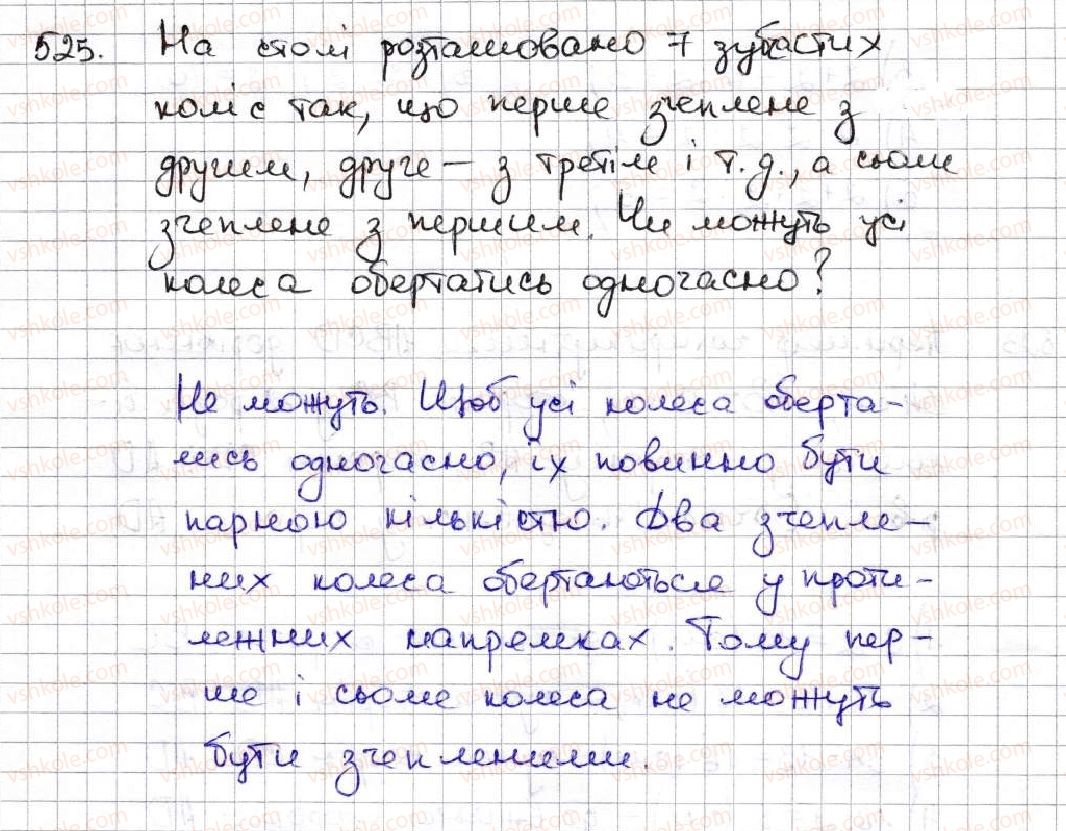 525. На столі розташовано 7 зубчастих
коліс так, що перше зчеплене з
другим, друге – з третім і т.д., а сьоме
зчеплене з першим. Чи можуть усі
колеса обертатись одночасно?
Не можуть. Щоб усі колеса оберта-
лись одночасно, їх повинно бути
парною кількістю. Два зчепле-
них колеса обертаються у проти-
лежних напрямках. Тому пер-
ше і сьоме колеса не можуть
бути зчепленими.